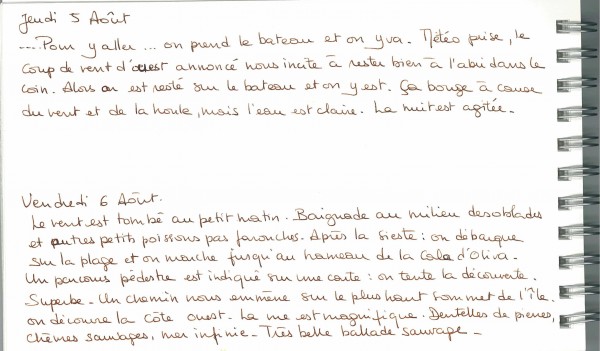 Jeudi 5 Août
.... Pour y aller ... on prend le bateau et on y va. Météo prise, le
coup de vent d'ouest annoncé nous incite à rester bien à l'abri dans le
coin. Alors on est resté sur le bateau et on y est. Ça bouge à cause
du vent et de la houle, mais l'eau est claire. La nuit est agitée.
Vendredi 6 Août.
Le vent est tombé au petit matin. Baignade au milieu des oblades
et autres petits poissons pas farouches. Après la sieste : on débarque
sur la plage et on marche jusqu'au hameau de la Cala d'Oliva.
Un parcours pédestre est indiqué sur une carte : on tente la découverte.
Superbe - Un chemin nous emmène sur le plus haut sommet de l'Île.
on découvre la côte ouest. La vue est magnifique. Dentelles de pierres,
chèvres sauvages, mer infinie - Très belle ballade sauvage -